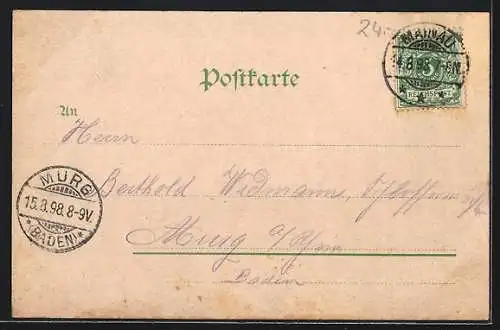 24.-
MAINAU
14.8.98.7-8N.
5
REICHSPOST
Postkarte
An
Herrn
Berthold Widmann,
Murg a/Rhein
Baden
MURG
15.8.98.8-9V.
* (BADEN) *